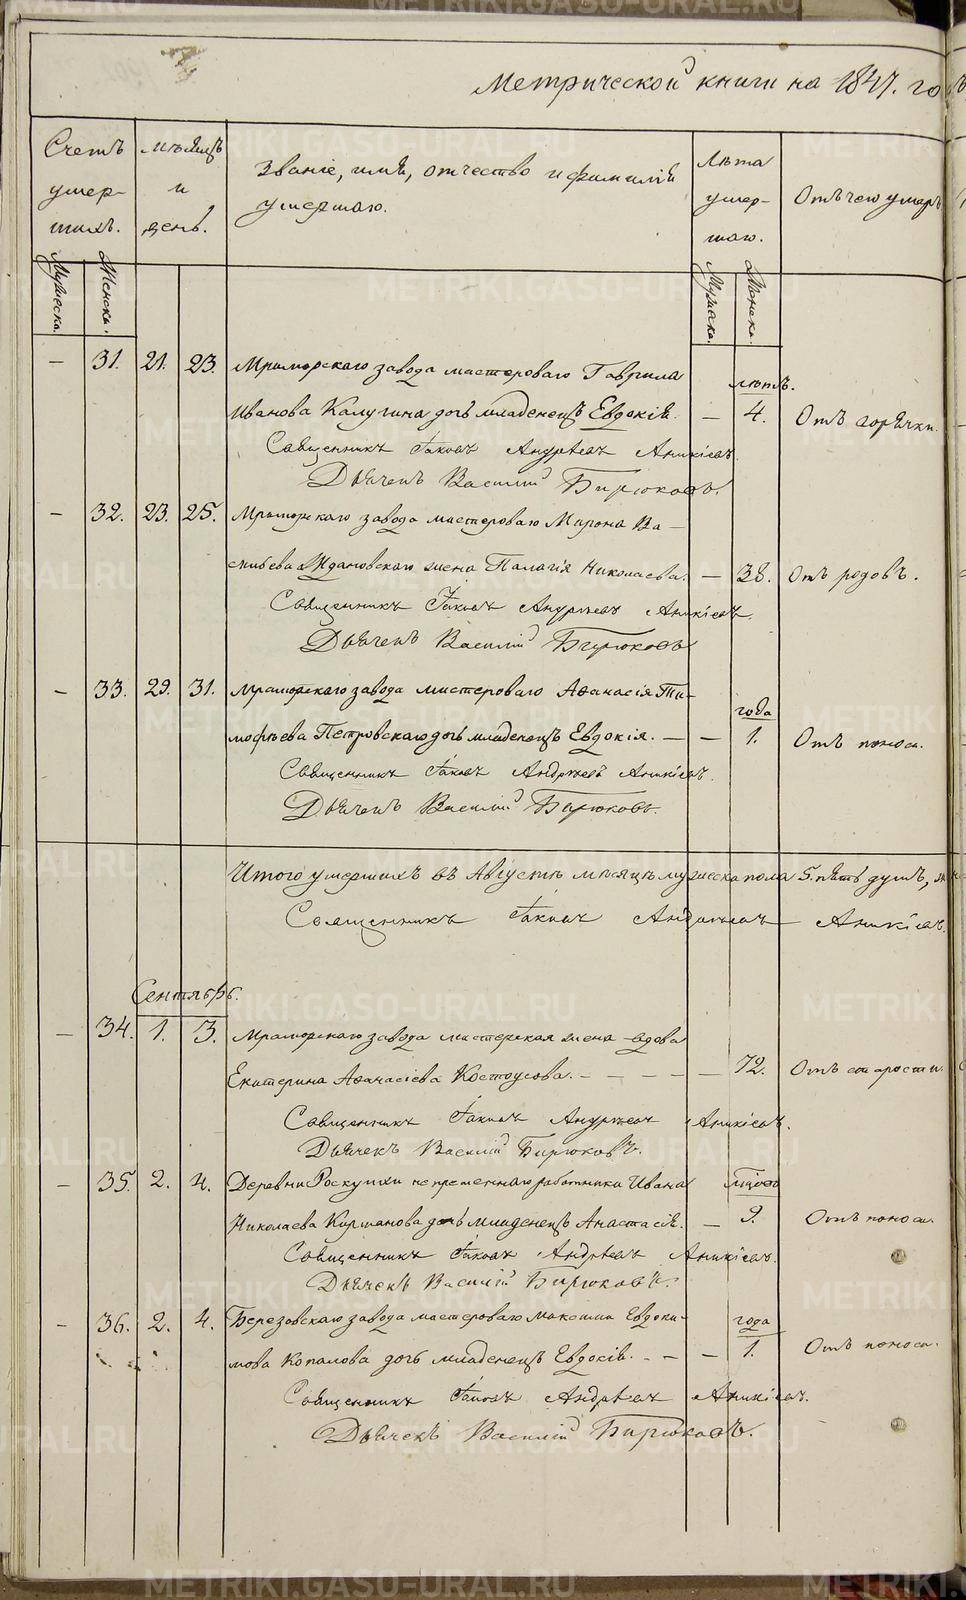 Метрической книги на 1847. го
Счетъ умерших.
мѣсяцъ и день.
Званіе, имя, отчество и фамилія умершаго.
Лѣта умершаго.
Отъ чего умеръ
Мужеска.
Женска.
Мужска.
Женска.
– 31. 21. 23. Мраморскаго завода мастероваго Гаврила
лѣтъ.
Иванова Калугина дочь младенецъ Евдокія. – 4. Отъ горячки.
Священникъ Іаковъ Андреевъ Аникіевъ
Дьячекъ Василій Бирюковъ.
– 32. 23. 25. Мраморскаго завода мастероваго Мирона Ва-
сильева Ждановскаго жена Палагія Николаева. – 38. Отъ родовъ.
Священникъ Іаковъ Андреевъ Аникіевъ
Дьячекъ Василій Бирюковъ
– 33. 29. 31. Мраморскаго завода мастероваго Аѳанасія Ти-
года
мофѣева Петровскаго дочь младенецъ Евдокія. – – 1. Отъ поноса.
Священникъ Іаковъ Андреевъ Аникіевъ.
Дьячекъ Василій Бирюковъ.
Итого умершихъ въ Августѣ мѣсяцѣ мужеска пола 5. пять душъ,
Священникъ Іаковъ Андреевъ Аникіевъ.
Сентябрь.
– 34. 1. 3. Мраморскаго завода мастерская жена вдова
Екатерина Аѳанасіева Костоусова. – – – – – 72. Отъ старости.
Священникъ Іаковъ Андреевъ Аникіевъ.
Дьячекъ Василій Бирюковъ.
– 35. 2. 4. Деревни Роскухи непременнаго работника Ивана
Николаева Киршанова дочь младенецъ Анастасія. – 9. Отъ поноса.
Священникъ Іаковъ Андреевъ Аникіевъ.
Дьячекъ Василій Бирюковъ.
– 36. 2. 4. Березовскаго завода мастероваго Максима Евдоки-
года
мова Копалова дочь младенецъ Евдокія. – – – 1. Отъ поноса.
Священникъ Іаковъ Андреевъ Аникіевъ.
Дьячекъ Василій Бирюковъ.
METRIKI.GASO-URAL.RU